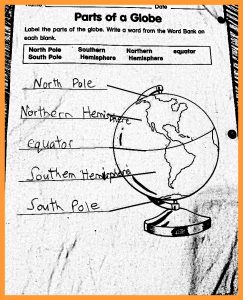 Name Date
Parts of a Globe
Label the parts of the globe. Write a word from the Word Bank on
each blank.
North Pole Southern Northern equator
South Pole Hemisphere Hemisphere
North Pole
Northern Hemisphere
equator
Southern Hemisphere
South Pole